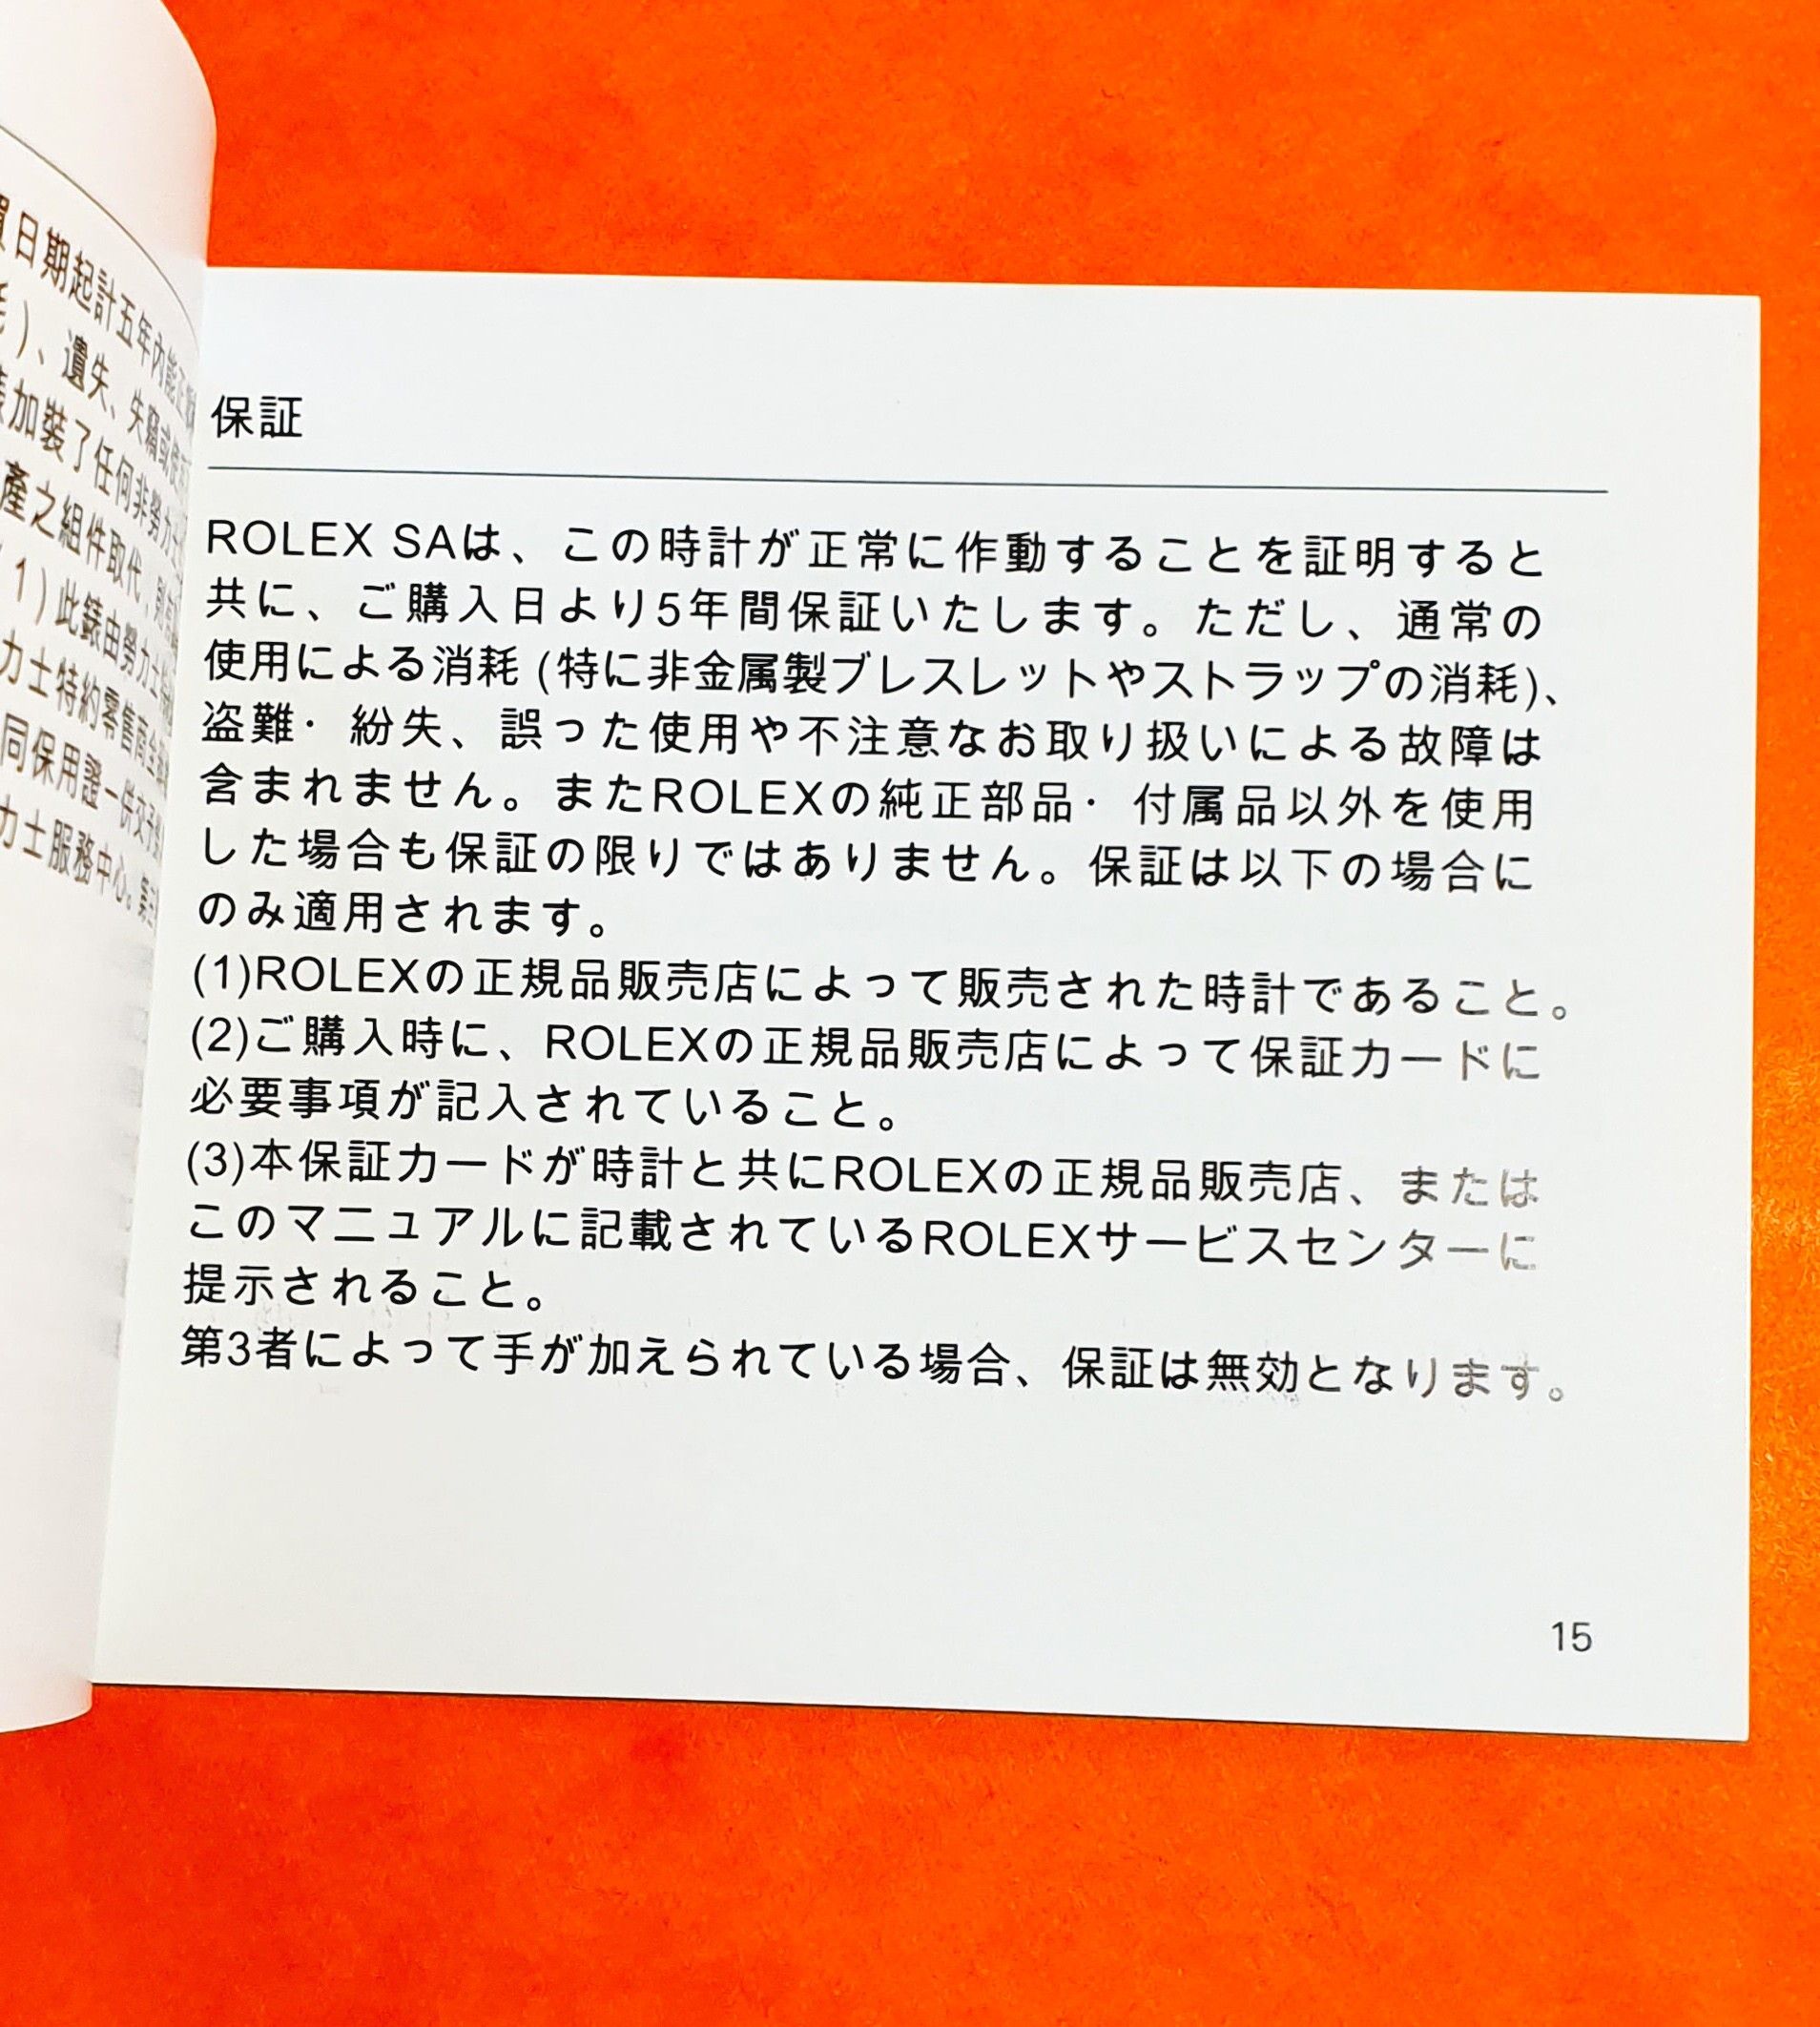 日期起計五年內能正
)、遺失、失竊或
加裝了任何非勞力士
產之組件取代,
(1)此錶由勞力士
力士特約零售商
同保用證一併交予
力士服務中心。
保証
ROLEX SAは、この時計が正常に作動することを証明すると
共に、ご購入日より5年間保証いたします。ただし、通常の
使用による消耗 (特に非金属製ブレスレットやストラップの消耗)、
盗難・ 紛失、誤った使用や不注意なお取り扱いによる故障は
含まれません。またROLEXの純正部品・ 付属品以外を使用
した場合も保証の限りではありません。保証は以下の場合に
のみ適用されます。
(1)ROLEXの正規品販売店によって販売された時計であること。
(2)ご購入時に、ROLEXの正規品販売店によって保証カードに
必要事項が記入されていること。
(3)本保証カードが時計と共にROLEXの正規品販売店、または
このマニュアルに記載されているROLEXサービスセンターに
提示されること。
第3者によって手が加えられている場合、保証は無効となります。
15